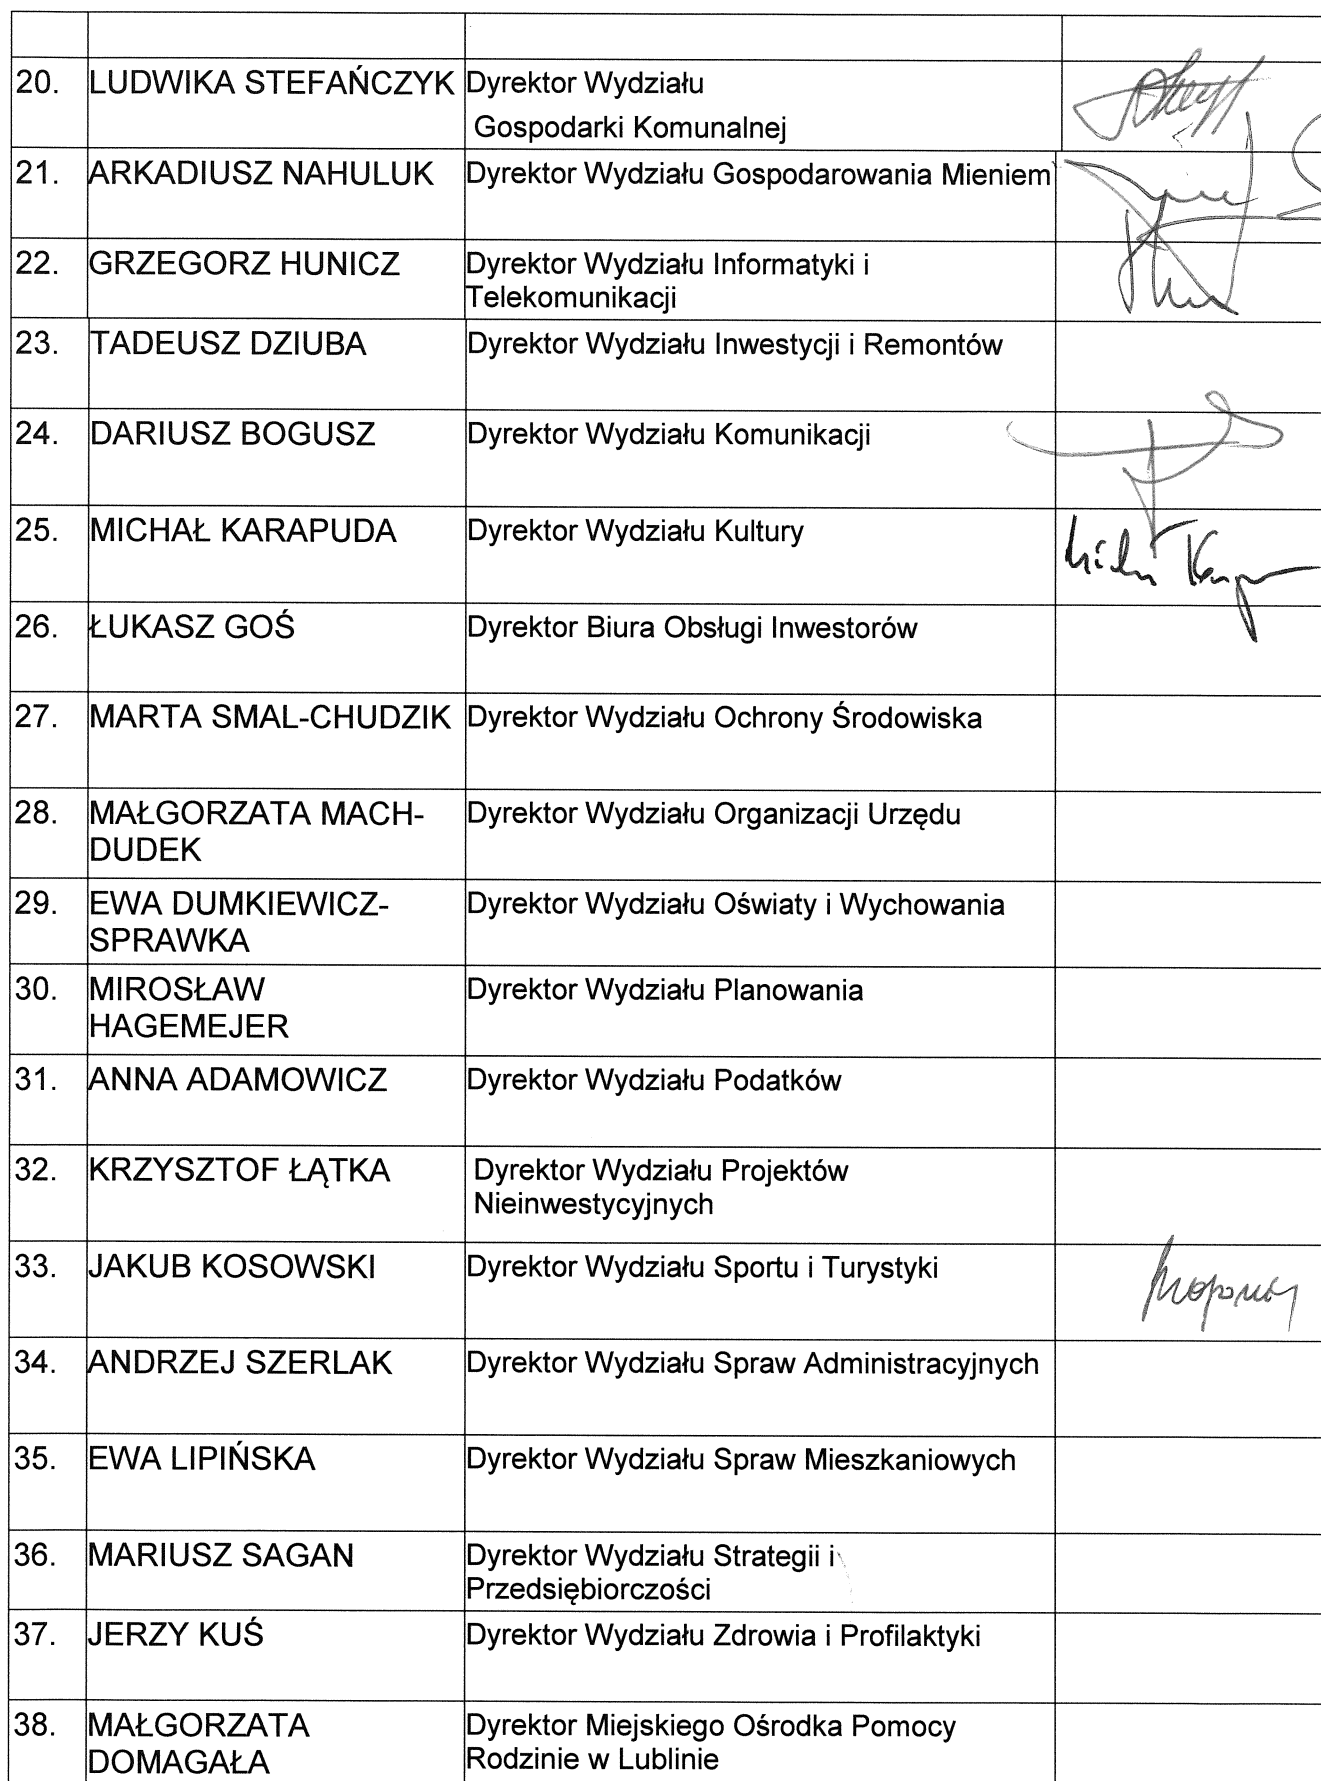 20. LUDWIKA STEFAŃCZYK Dyrektor Wydziału
Gospodarki Komunalnej
21. ARKADIUSZ NAHULUK Dyrektor Wydziału Gospodarowania Mieniem
22. GRZEGORZ HUNICZ Dyrektor Wydziału Informatyki i
Telekomunikacji
23. TADEUSZ DZIUBA Dyrektor Wydziału Inwestycji i Remontów
24. DARIUSZ BOGUSZ Dyrektor Wydziału Komunikacji
25. MICHAŁ KARAPUDA Dyrektor Wydziału Kultury
26. ŁUKASZ GOŚ Dyrektor Biura Obsługi Inwestorów
27. MARTA SMAL-CHUDZIK Dyrektor Wydziału Ochrony Środowiska
28. MAŁGORZATA MACH- Dyrektor Wydziału Organizacji Urzędu
DUDEK
29. EWA DUMKIEWICZ- Dyrektor Wydziału Oświaty i Wychowania
SPRAWKA
30. MIROSŁAW Dyrektor Wydziału Planowania
HAGEMEJER
31. ANNA ADAMOWICZ Dyrektor Wydziału Podatków
32. KRZYSZTOF ŁĄTKA Dyrektor Wydziału Projektów
Nieinwestycyjnych
33. JAKUB KOSOWSKI Dyrektor Wydziału Sportu i Turystyki
34. ANDRZEJ SZERLAK Dyrektor Wydziału Spraw Administracyjnych
35. EWA LIPIŃSKA Dyrektor Wydziału Spraw Mieszkaniowych
36. MARIUSZ SAGAN Dyrektor Wydziału Strategii i
Przedsiębiorczości
37. JERZY KUŚ Dyrektor Wydziału Zdrowia i Profilaktyki
38. MAŁGORZATA Dyrektor Miejskiego Ośrodka Pomocy
DOMAGAŁA Rodzinie w Lublinie